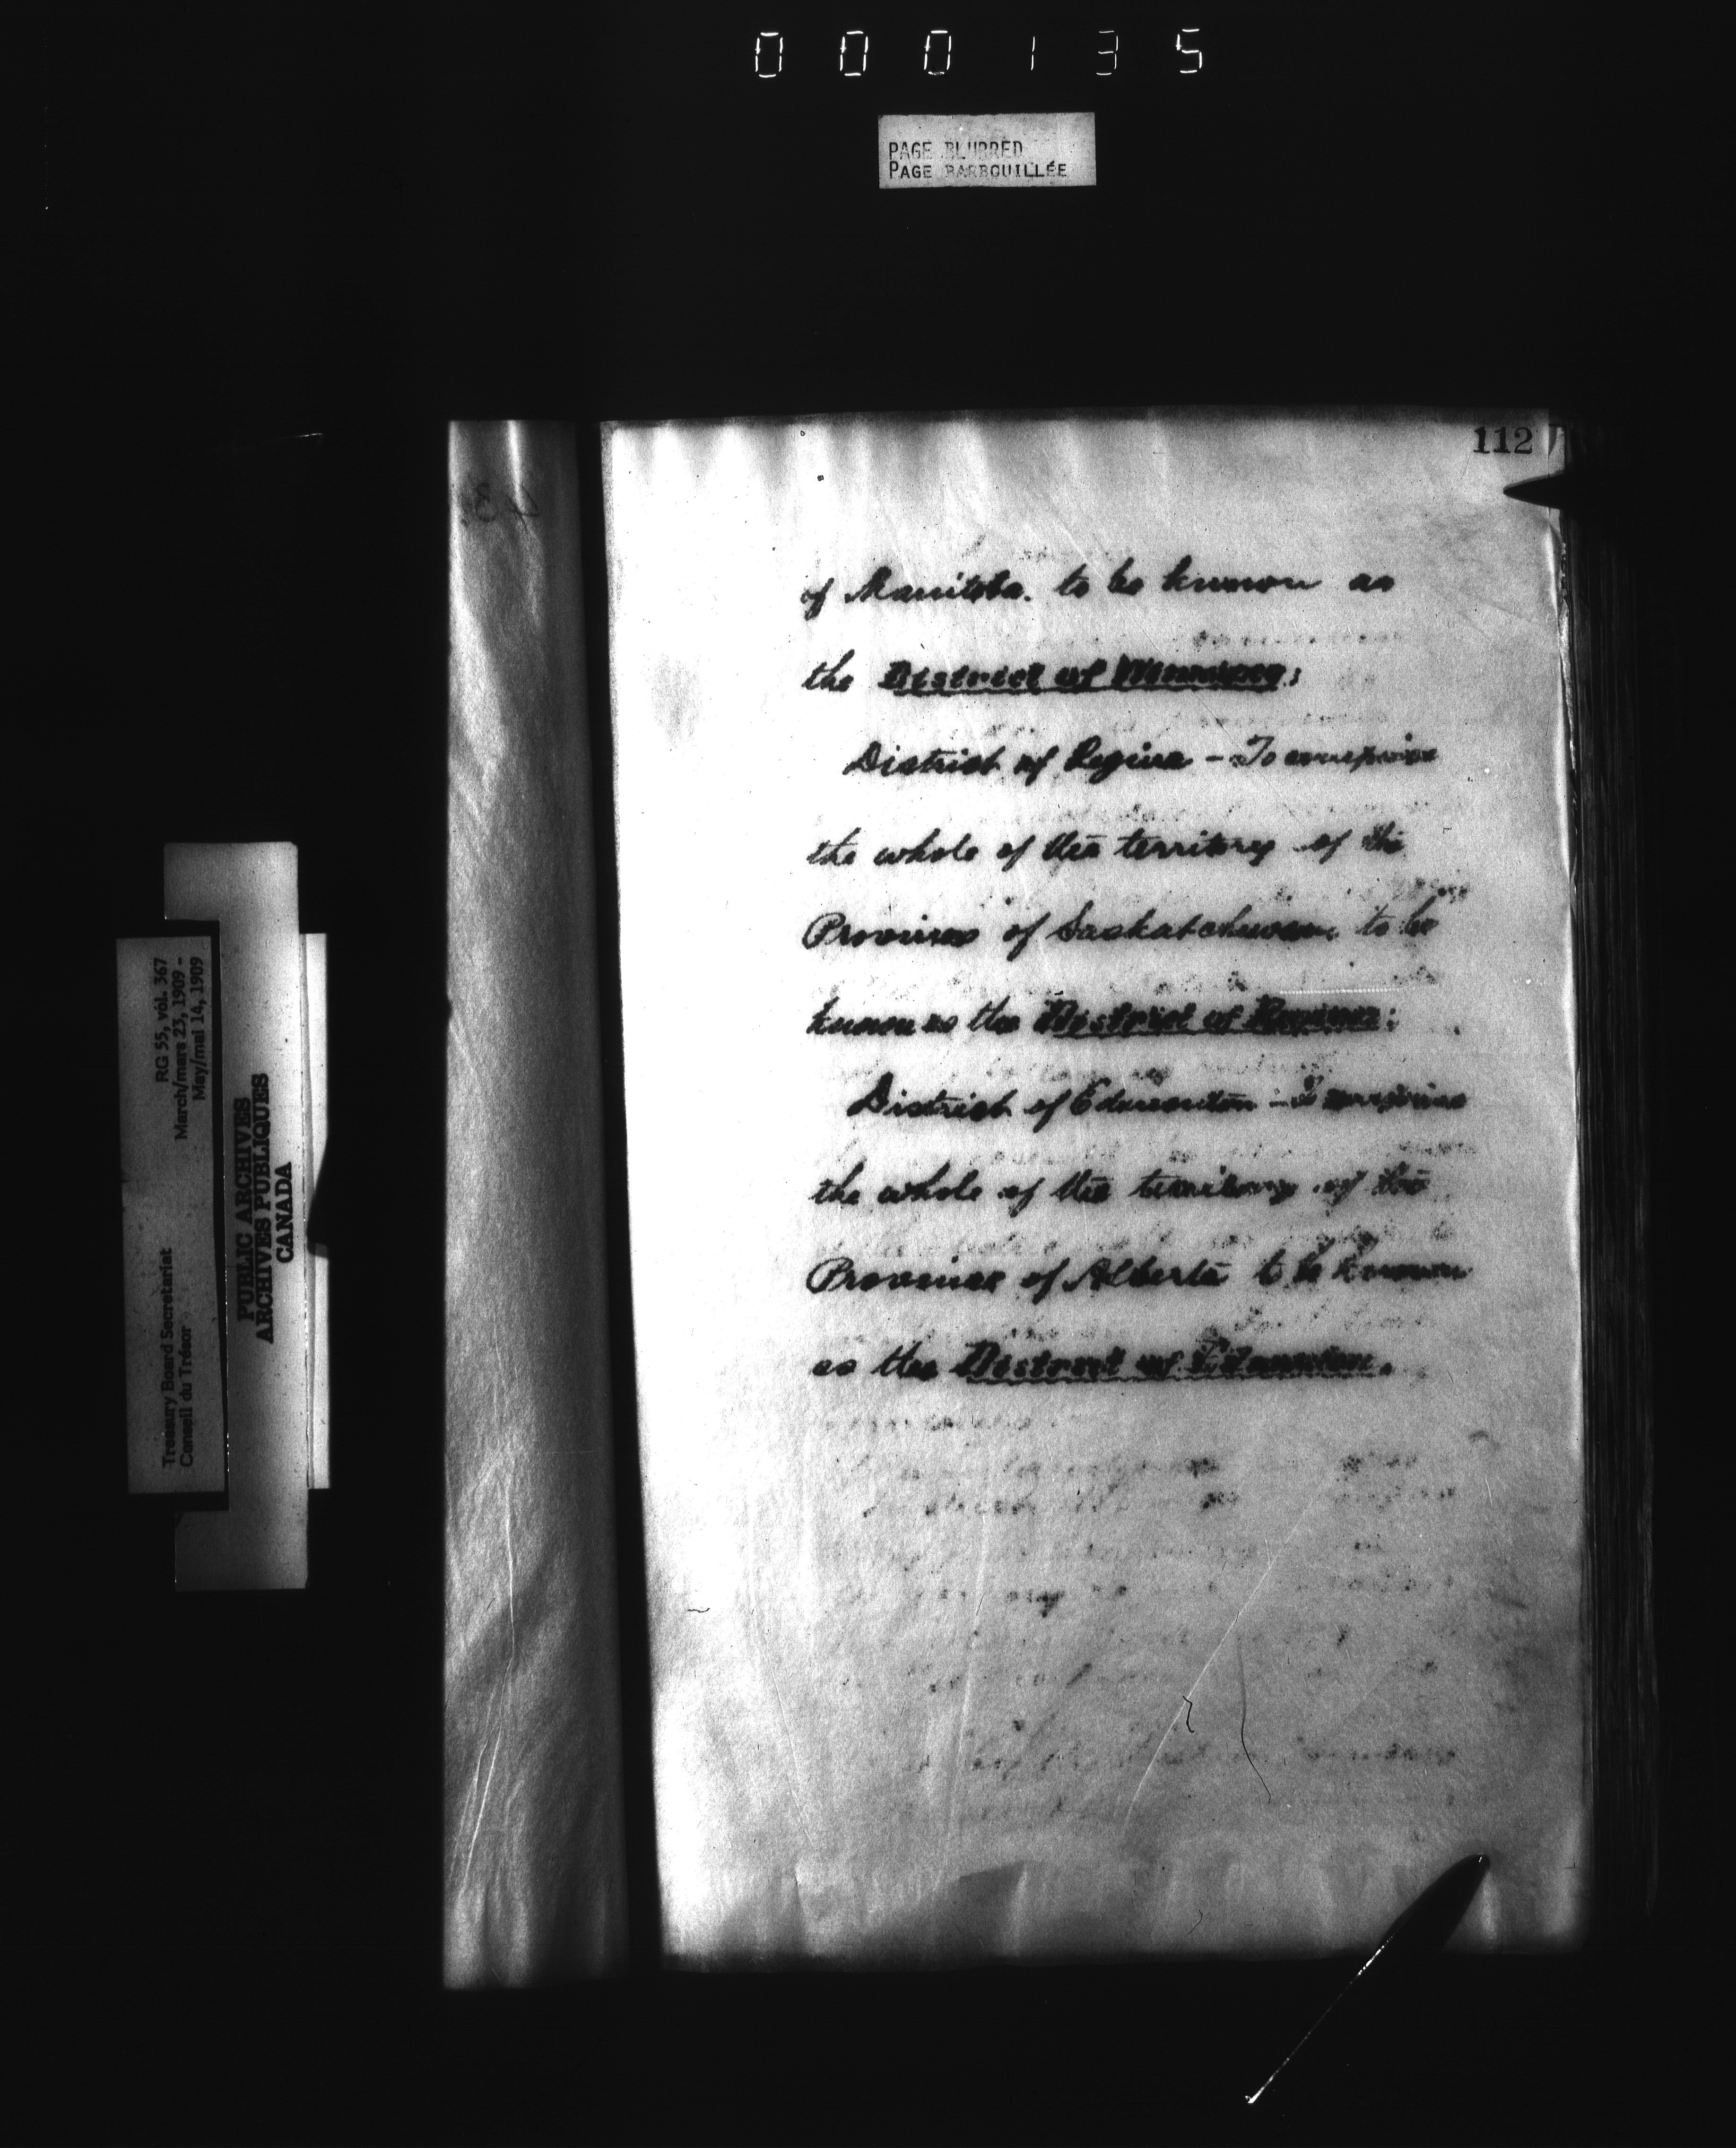 000135
PAGE BLURRED
PAGE BARBOUILLÉE
112
of Manitoba. to be known as
the District of Winnipeg;
District of Regina - To comprise
the whole of the territory of the
Province of Saskatchewan, to be
known as the District of Regina;
District of Edmonton - To comprise
the whole of the territory of the
Province of Alberta to be known
as the District of Edmonton.
RG 55, vol. 367
March/mars 23, 1909 -
May/mai 14, 1909
Treasury Board Secretariat
Conseil du Trésor
PUBLIC ARCHIVES
ARCHIVES PUBLIQUES
CANADA